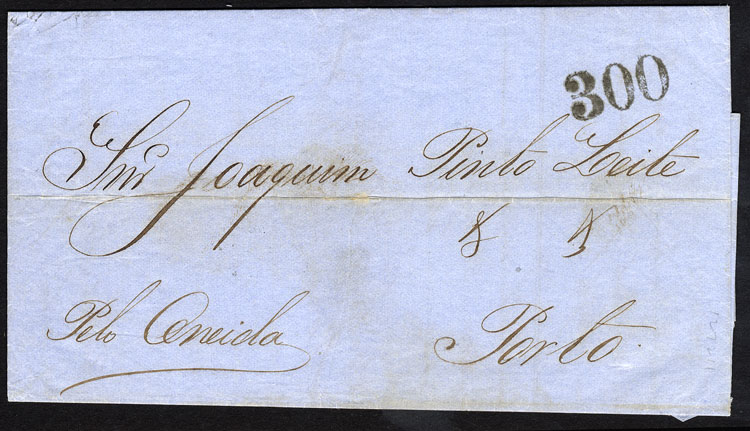 300
Snr Joaquim Pinto Leite
& &
Pelo Oneida
Porto